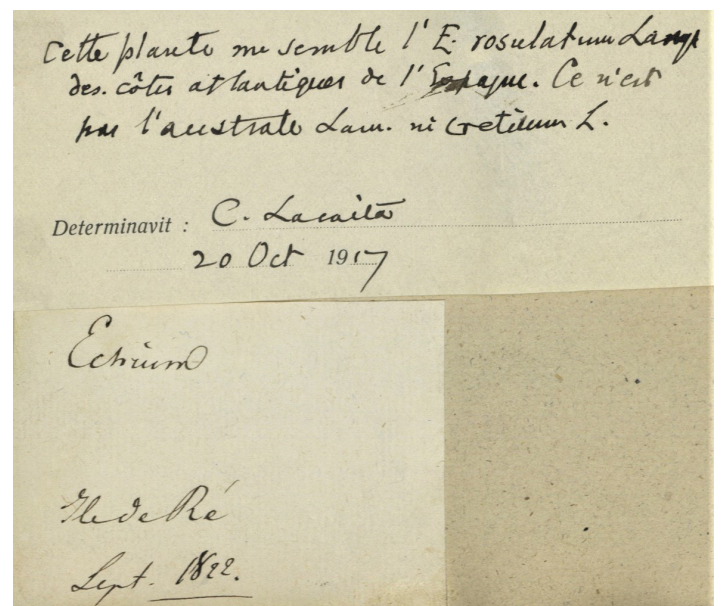 Cette plante me semble l'E. rosulatum Lange
des côtes atlantiques de l'Espagne. Ce n'est
pas l'australe Lam. ni creticum L.
Determinavit : C. Lacaita
20 Oct 1917
Echium
Ile de Ré
Sept. 1822.